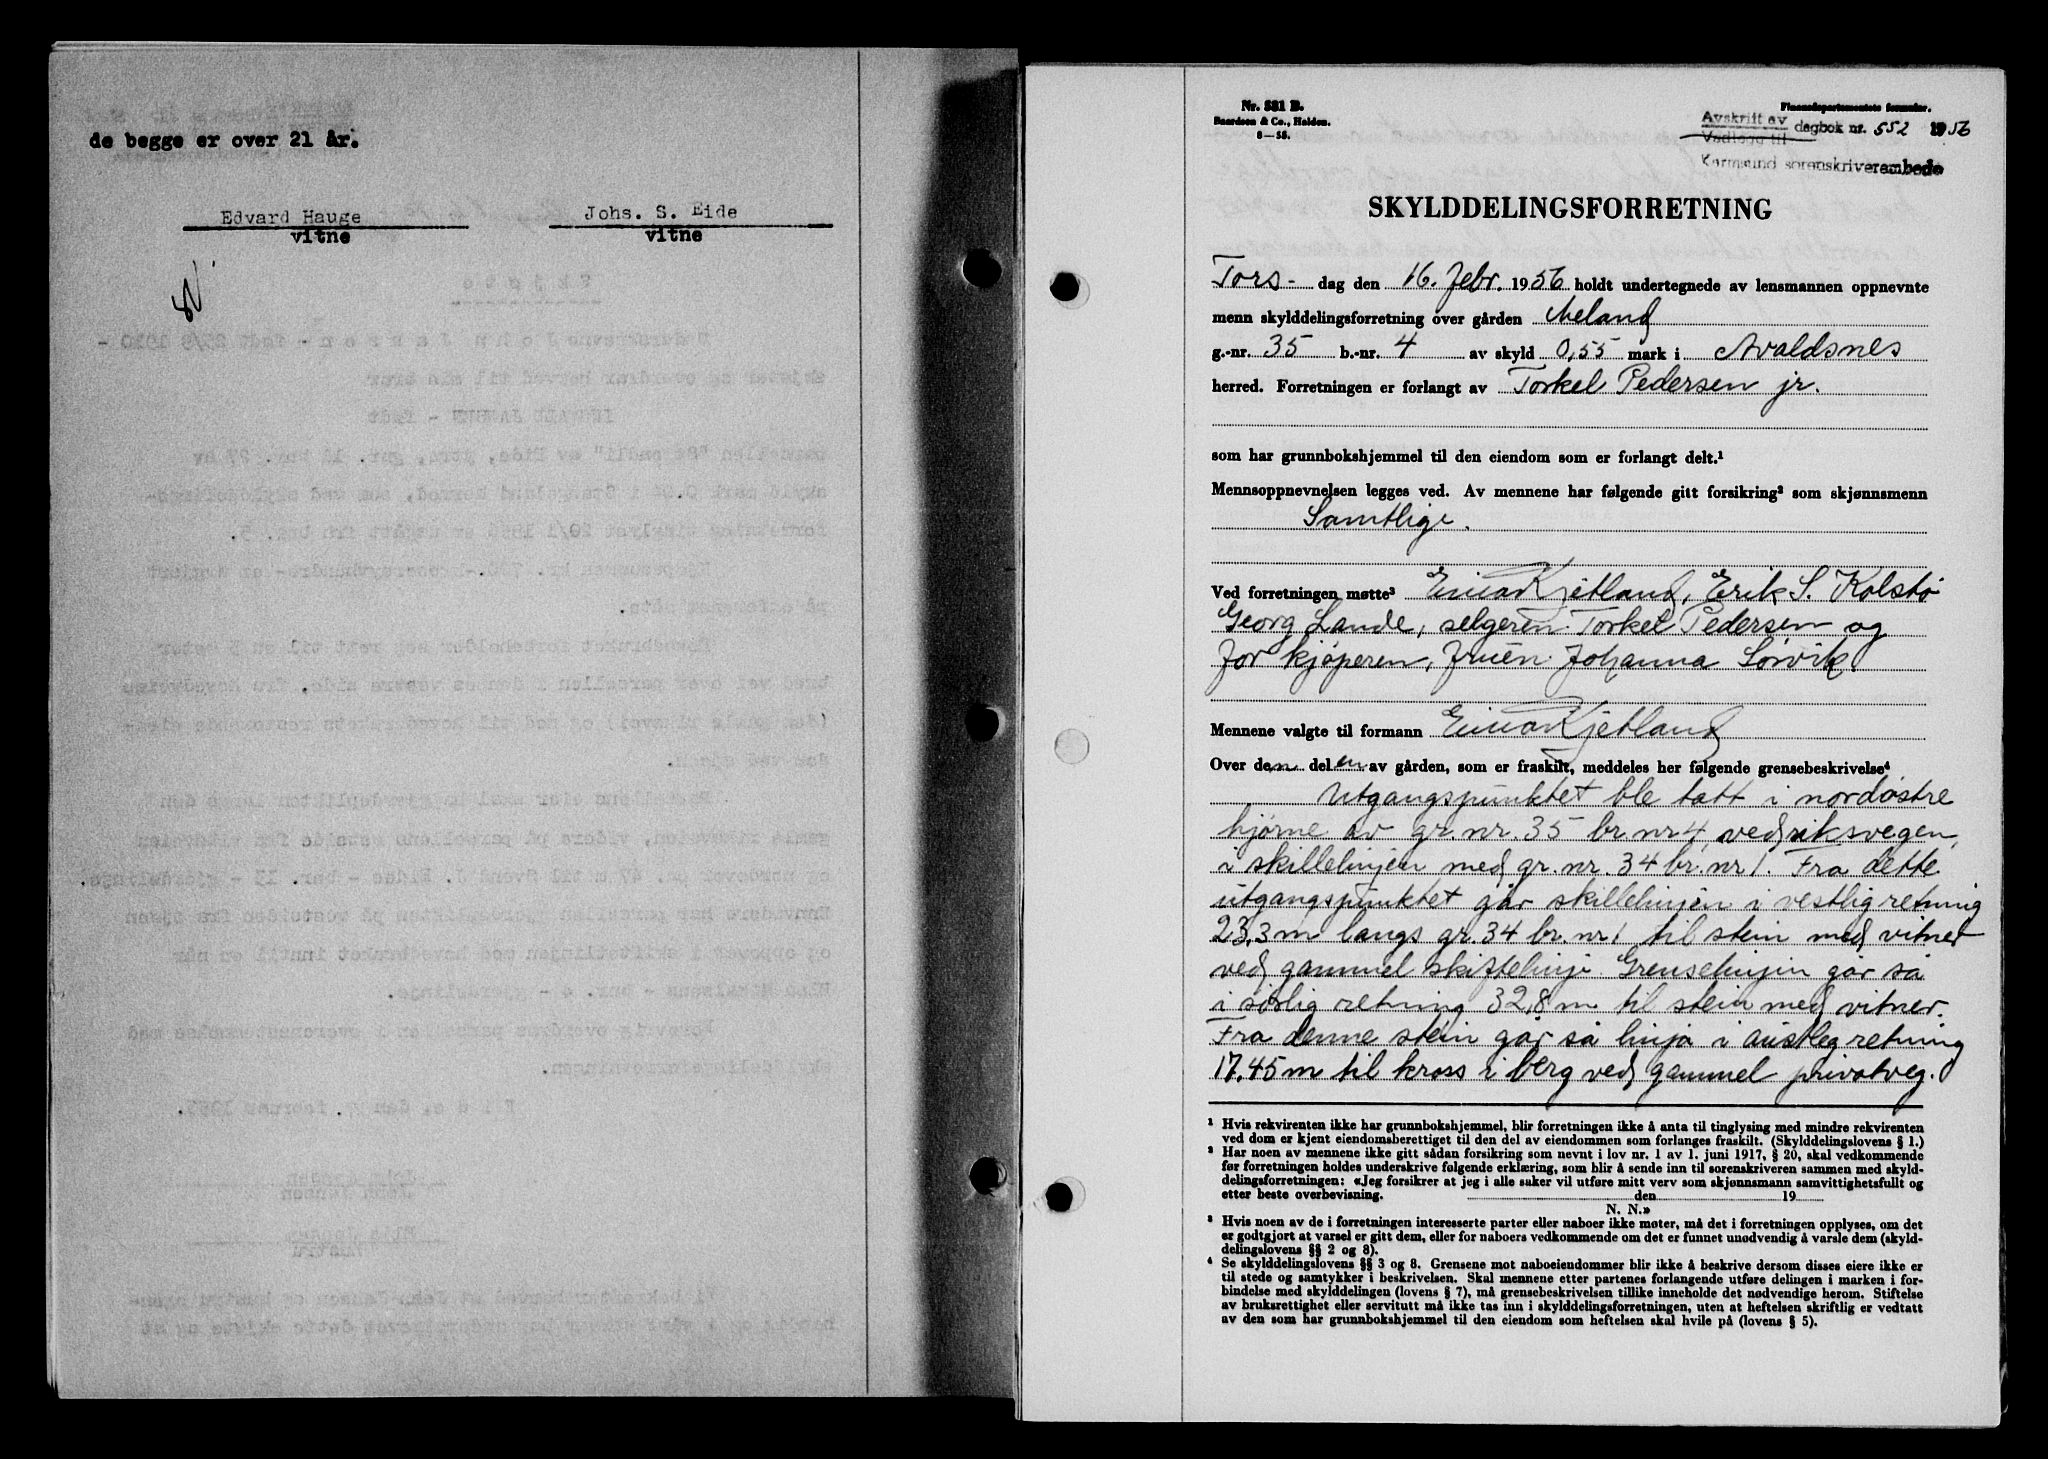 de begge er over 21 år.
Edvard Hauge
vitne
Johs. S. Eide
vitne
Nr. 531 B.
Baardsen & Co., Halden.
8—53.
Finansdepartementets formular.
Avskrift av
Vedlegg til
dagbok nr. 552 1956
Karmsund sorenskriverembede
SKYLDDELINGSFORRETNING
Tors- dag den 16. febr. 1956 holdt undertegnede av lensmannen oppnevnte
menn skylddelingsforretning over gården Meland
g.-nr. 35 b.-nr. 4 av skyld 0,55 mark i Avaldsnes
herred. Forretningen er forlangt av Torkel Pedersen jr.
som har grunnbokshjemmel til den eiendom som er forlangt delt.¹
Mennsoppnevnelsen legges ved. Av mennene har følgende gitt forsikring² som skjønnsmenn
Samtlige.
Ved forretningen møtte³ Einar Kjetland, Erik S. Kolstø
Georg Lande, selgeren Torkel Pedersen og
for kjøperen, fruen Johanna Sørvik.
Mennene valgte til formann Einar Kjetland
Over den delen av gården, som er fraskilt, meddeles her følgende grensebeskrivelse⁴
Utgangspunktet ble tatt i nordøstre
hjørne av gr. nr. 35 br. nr 4, ved riksvegen,
i skillelinjen med gr. nr. 34 br. nr 1. Fra dette
utgangspunktet går skillelinjen i vestlig retning
23,3 m langs gr. 34 br. nr 1 til stein med vitner
ved gammel skiftelinje. Grenselinjen går så
i sørlig retning 32,8 m til stein med vitner.
Fra denne stein går så linja i austleg retning
17.45 m til kross i berg ved gammel privatveg.
¹ Hvis rekvirenten ikke har grunnbokshjemmel, blir forretningen ikke å anta til tinglysing med mindre rekvirenten
ved dom er kjent eiendomsberettiget til den del av eiendommen som forlanges fraskilt. (Skylddelingslovens § 1.)
² Har noen av mennene ikke gitt sådan forsikring som nevnt i lov nr. 1 av 1. juni 1917, § 20, skal vedkommende
før forretningen holdes underskrive følgende erklæring, som blir å sende inn til sorenskriveren sammen med skyld-
delingsforretningen: «Jeg forsikrer at jeg i alle saker vil utføre mitt verv som skjønnsmann samvittighetsfullt og
etter beste overbevisning. den 19
N. N.»
³ Hvis noen av de i forretningen interesserte parter eller naboer ikke møter, må det i forretningen opplyses, om det
er godtgjort at varsel er gitt dem, eller for naboers vedkommende om det er funnet unødvendig å varsle dem (skyld-
delingslovens §§ 2 og 8).
⁴ Se skylddelingslovens §§ 3 og 8. Grensene mot naboeiendommer blir ikke å beskrive dersom disses eiere ikke er
til stede og samtykker i beskrivelsen. Skal mennene etter partenes forlangende utføre delingen i marken i for-
bindelse med skylddelingen (lovens § 7), må grensebeskrivelsen tillike inneholde det nødvendige herom. Stiftelse
av bruksrettighet eller servitutt må ikke tas inn i skylddelingsforretningen, uten at heftelsen skriftlig er vedtatt
av den som har grunnbokshjemmel til den eiendom som heftelsen skal hvile på (lovens § 5).